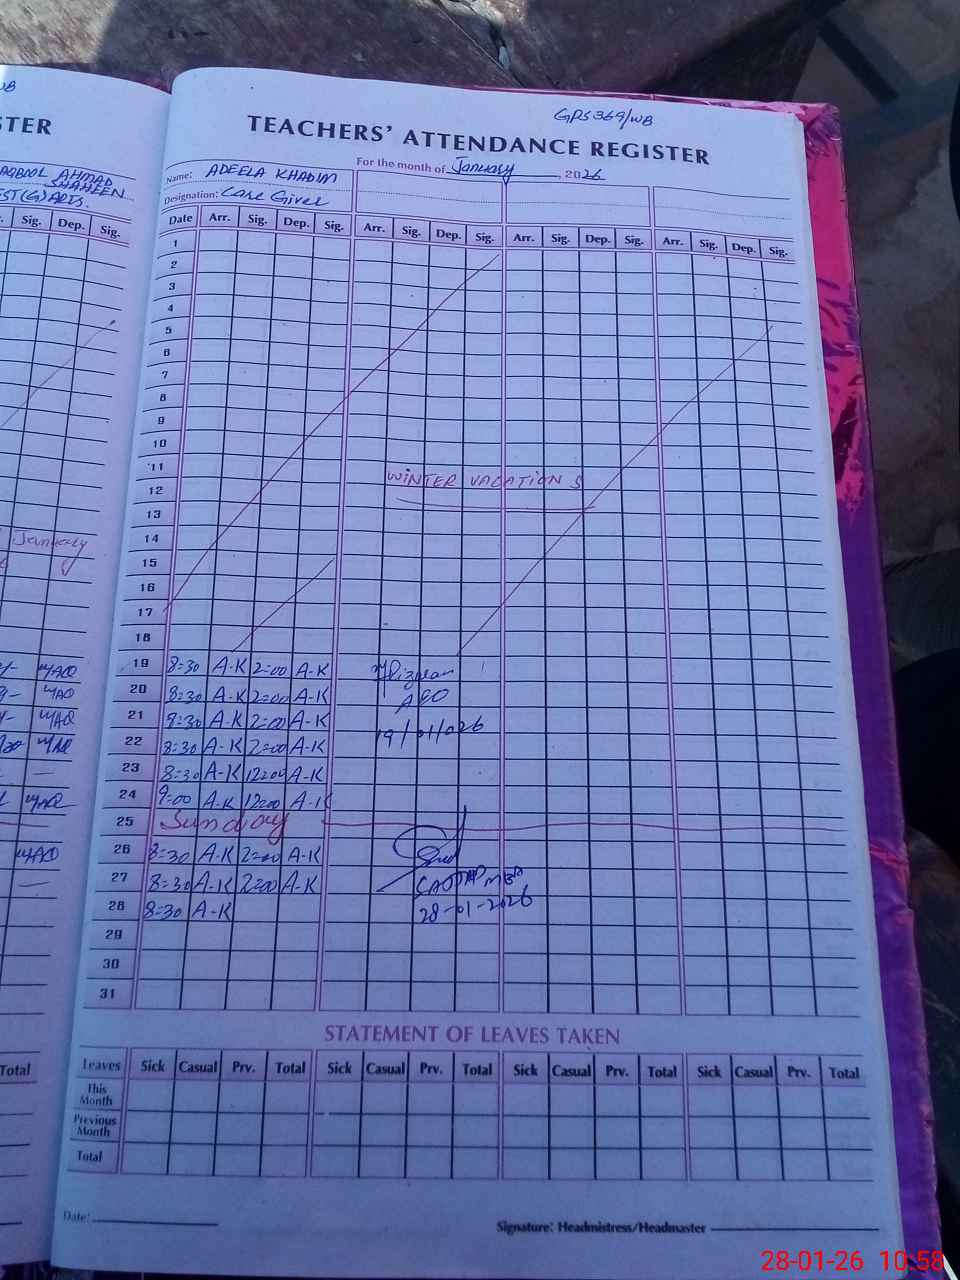 WB
STER
AQBOOL AHMAD
SHAHEEN
EST(G) ARTS.
Sig. Dep. Sig.
January
Total
GPS 369/WB
TEACHERS' ATTENDANCE REGISTER
For the month of January, 2026
Name: ADEELA KHADIM
Designation: Care Giver
Date Arr. Sig. Dep. Sig. Arr. Sig. Dep. Sig. Arr. Sig. Dep. Sig. Arr. Sig. Dep. Sig.
1
2
3
4
5
6
7
8
9
10
11
WINTER VACATIONS
12
13
14
15
16
17
18
19 8:30 A-K 2:00 A-K
20 8:30 A-K 2:00 A-K
AEO
21 8:30 A-K 2:00 A-K
19/01/026
22 8:30 A-K 2:00 A-K
23 8:30 A-K 12:00 A-K
24 9:00 A-K 12:00 A-K
25 Sunday
26 8:30 A-K 2:00 A-K
27 8:30 A-K 2:00 A-K
28 8:30 A-K
28-01-2026
29
30
31
STATEMENT OF LEAVES TAKEN
Leaves Sick Casual Prv. Total Sick Casual Prv. Total Sick Casual Prv. Total Sick Casual Prv. Total
This Month
Previous Month
Total
Date:
Signature: Headmistress/Headmaster
28-01-26 10:58